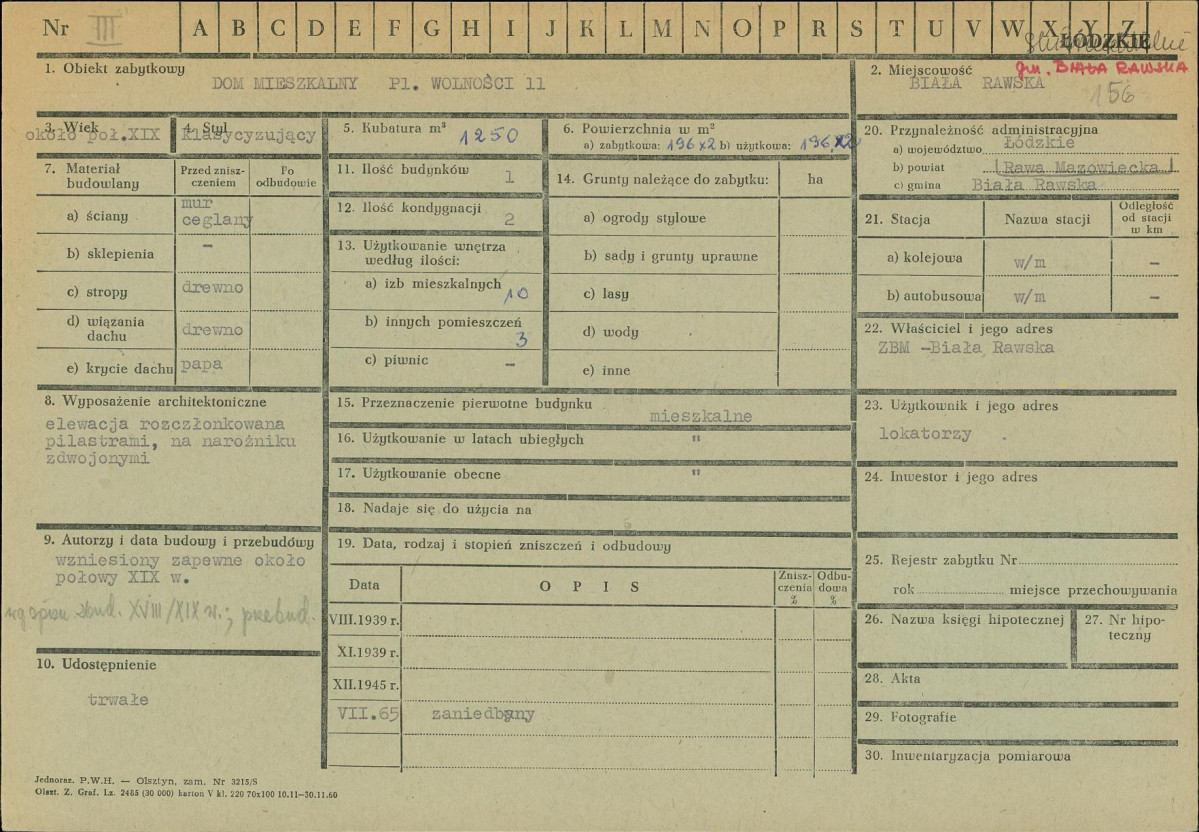 Nr III A B C D E F G H I J K L M N O P R S T U V W X Y Z
ŁÓDZKIE
gm. BIAŁA RAWSKA
156
1. Obiekt zabytkowy
DOM MIESZKALNY Pl. WOLNOŚCI 11
2. Miejscowość
BIAŁA RAWSKA
3. Wiek
około poł.XIX
4. Styl
klasycyzujący
5. Kubatura m³
1250
6. Powierzchnia w m²
a) zabytkowa: 196x2 b) użytkowa: 196x2
7. Materiał budowlany
Przed zniszczeniem
Po odbudowie
a) ściany
mur
ceglany
b) sklepienia –
c) stropy drewno
d) wiązania dachu drewno
e) krycie dachu papa
8. Wyposażenie architektoniczne
elewacja rozczłonkowana
pilastrami, na narożniku
zdwojonymi
9. Autorzy i data budowy i przebudówy
wzniesiony zapewne około
połowy XIX w.
wg spisu zbud. XVIII/XIX w.; przebud.
10. Udostępnienie
trwałe
11. Ilość budynków 1
12. Ilość kondygnacji 2
13. Użytkowanie wnętrza
według ilości:
a) izb mieszkalnych 10
b) innych pomieszczeń 3
c) piwnic –
14. Grunty należące do zabytku: ha
a) ogrody stylowe
b) sady i grunty uprawne
c) lasy
d) wody
e) inne
15. Przeznaczenie pierwotne budynku mieszkalne
16. Użytkowanie w latach ubiegłych "
17. Użytkowanie obecne "
18. Nadaje się do użycia na
19. Data, rodzaj i stopień zniszczeń i odbudowy
Data OPIS Zniszczenia % Odbudowa %
VIII.1939 r.
XI.1939 r.
XII.1945 r.
VII.65 zaniedbany
20. Przynależność administracyjna
a) województwo Łódzkie
b) powiat (Rawa Mazowiecka)
c) gmina Biała Rawska
21. Stacja Nazwa stacji Odległość od stacji w km
a) kolejowa w/m –
b) autobusowa w/m –
22. Właściciel i jego adres
ZBM –Biała Rawska
23. Użytkownik i jego adres
lokatorzy
24. Inwestor i jego adres
25. Rejestr zabytku Nr
rok miejsce przechowywania
26. Nazwa księgi hipotecznej
27. Nr hipoteczny
28. Akta
29. Fotografie
30. Inwentaryzacja pomiarowa
Jednoraz. P.W.H. — Olsztyn, zam. Nr 3215/S
Olszt. Z. Graf. Lz. 2485 (30 000) karton V kl. 220 70x100 10.11–30.11.60